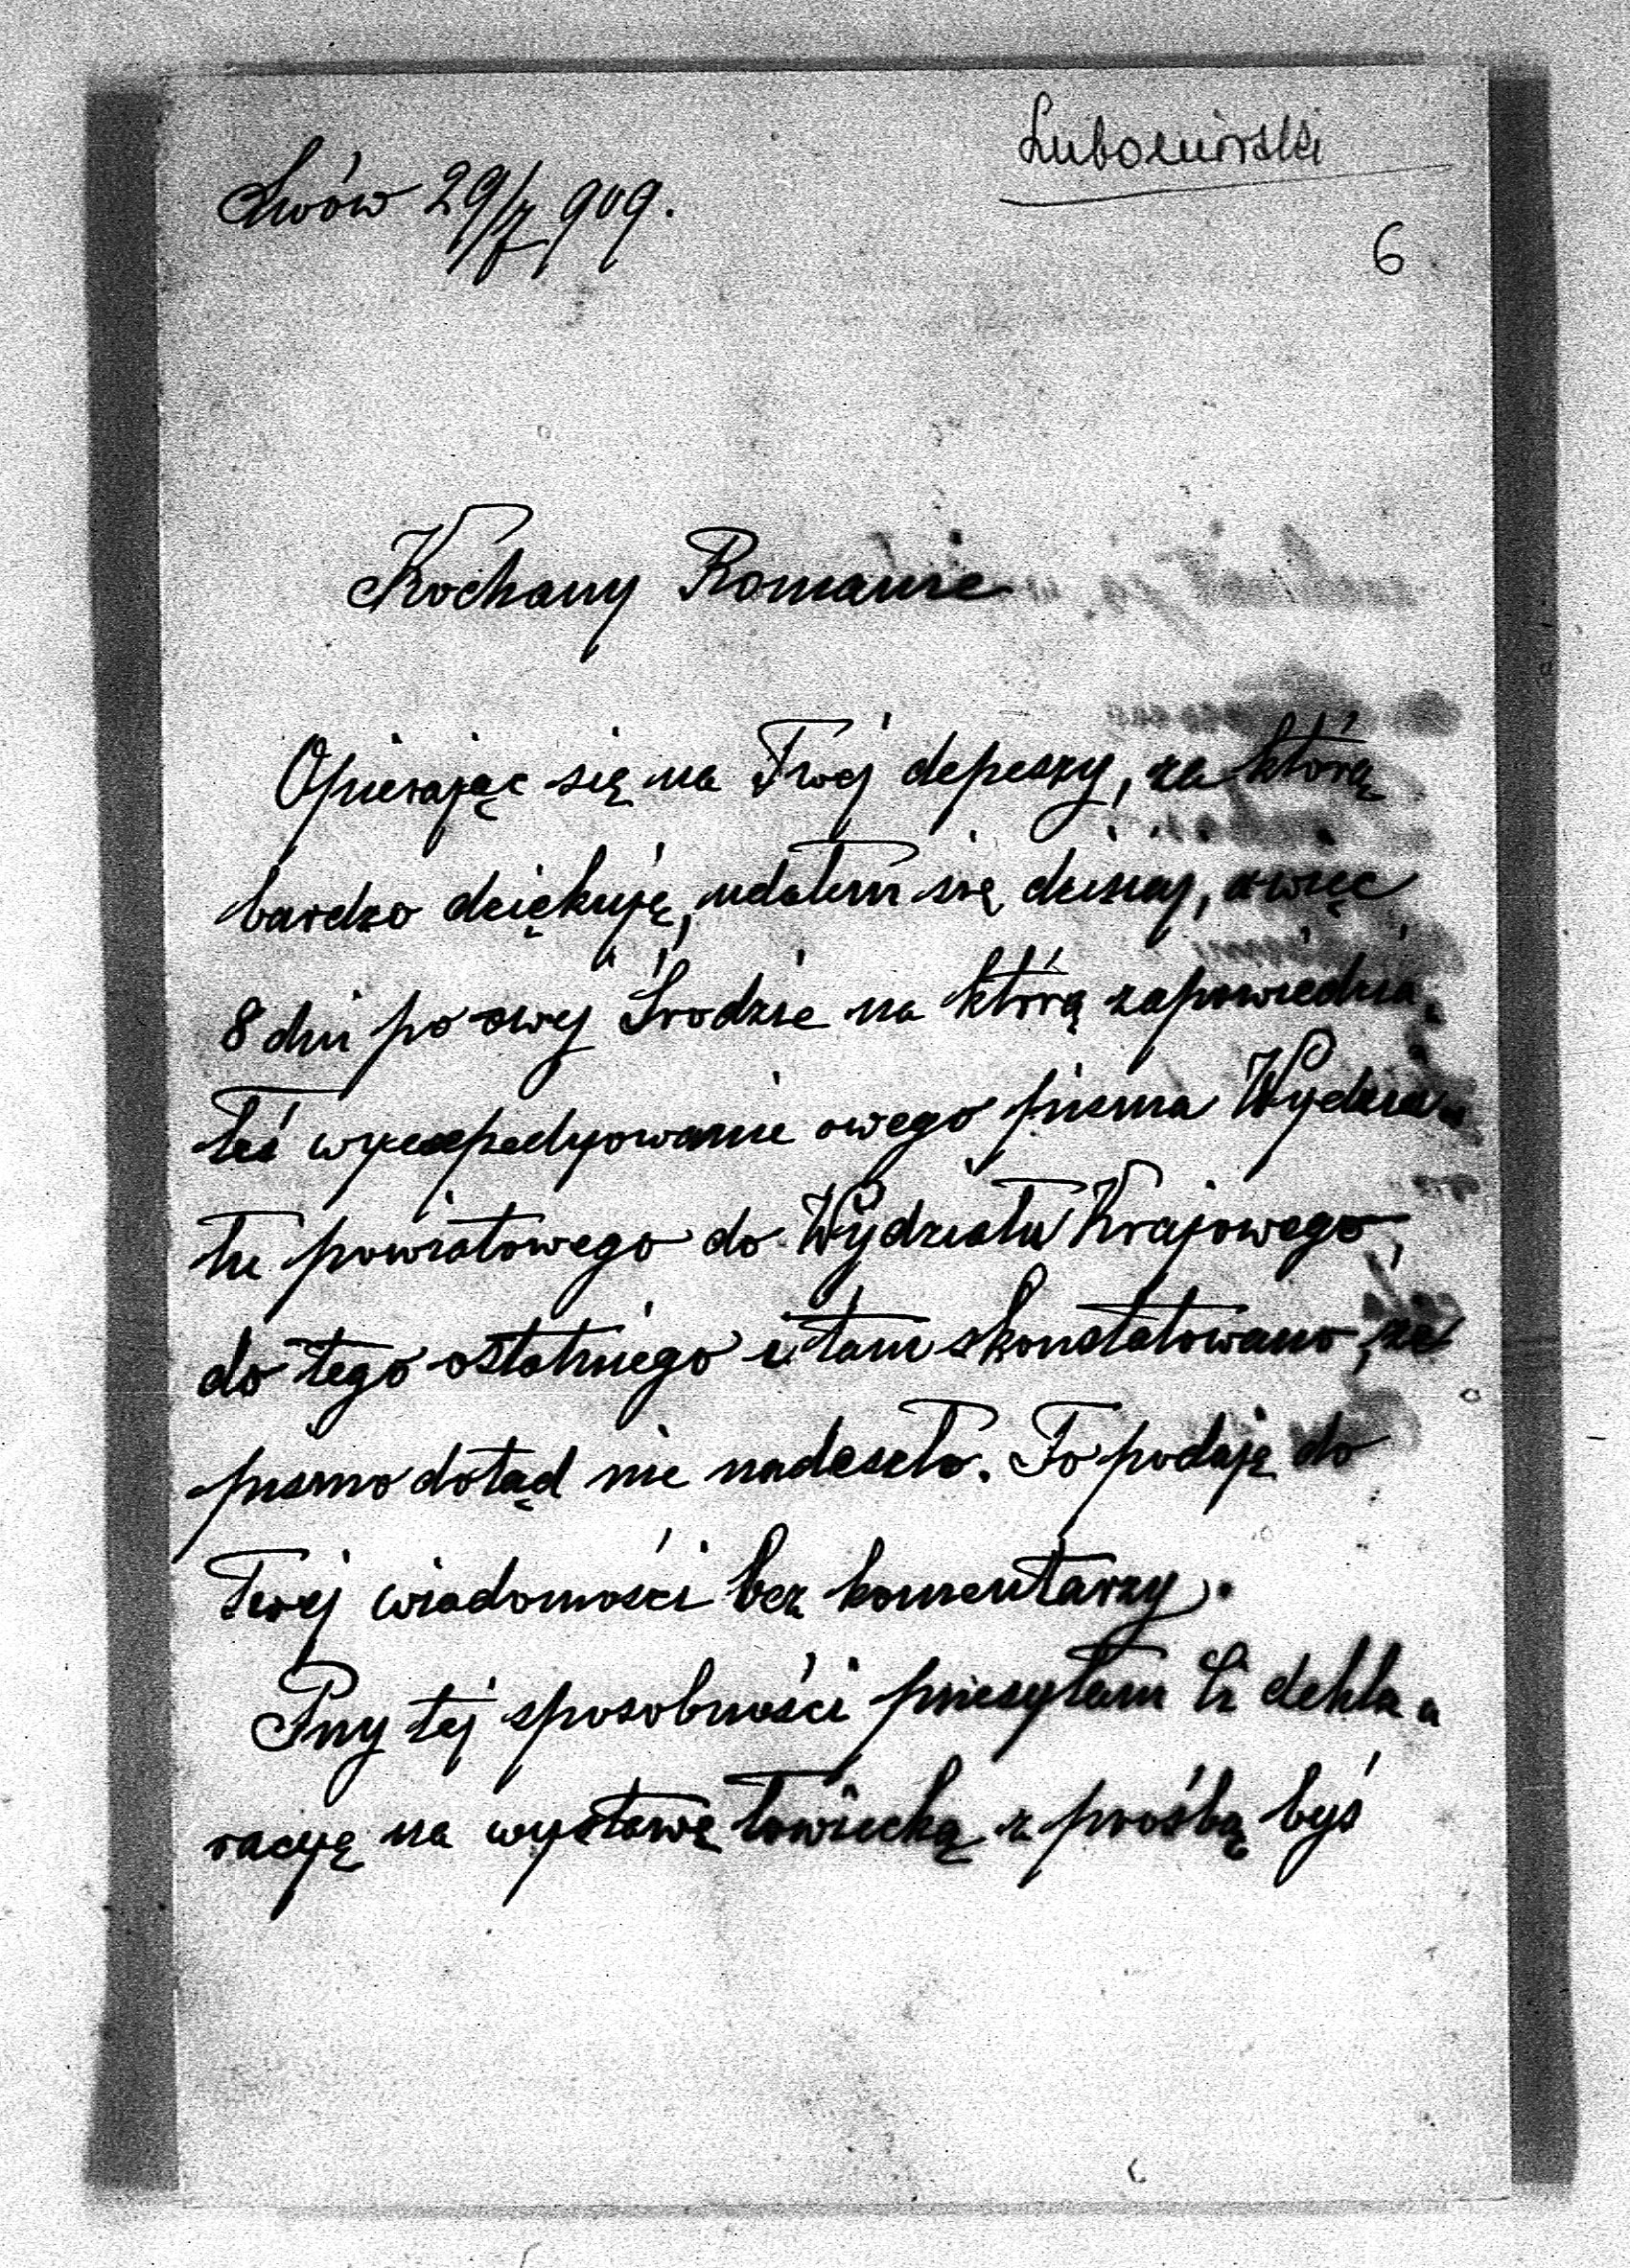 Lubomirski
Lwów 29/7 909.
6
Kochany Romanie
Opierając się na Twej depeszy, za którą
bardzo dziękuję, udałem się dzisiaj, a więc
8 dni po owej Środzie na którą zapowiedzia„
łeś wyexpedyowanie owego pisma Wydzia„
łu powiatowego do Wydziału Krajowego,
do tego ostatniego i tam skonstatowano, że
pismo dotąd nie nadeszło. To podaję do
Twej wiadomości bez komentarzy.
Przy tej sposobności przesyłam Ci dekla„
racyę na wystawę łowiecką z prośbą byś